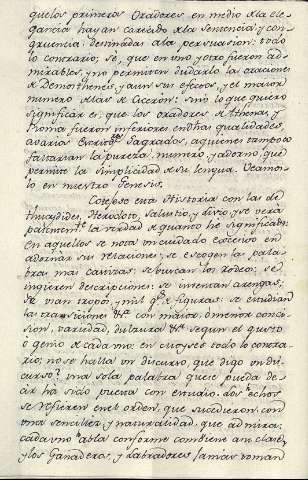 que los primeros Oradores en medio de la ele-
gancia hayan carecido de la Sentencia, y con-
gruencia destinadas a la persuasion: todo
lo contrario; se, que en uno, y otro fueron ad-
mirables, y no permiten dudarlo las oraciones
de Demosthenes, y aun sus efectos, y el maior
numero de las de Ciceron: sino lo que quiero
significar es, que los oradores de Athenas, y
Roma fueron inferiores en dhas qualidades,
a varios Sagrados, a quienes tampoco
faltarian la pureza, numero, y adorno, que
permite la simplicidad de su lengua. Veamos-
lo en nuestro Genesis.
Cotejese esta Historia con las de
Thucydides, Herodoto, Salustio, y Livio, y se verá
la verdad de quanto he significado:
en aquellos se nota un cuidado excesivo en
adornar sus relaciones; se escogen las pala-
bras mas castizas: se buscan los rodeos; se
ingieren descripciones: se inventan arengas:
se usan tropos, y mil de figuras: se estudian
las transiciones con maior, o menor conci-
sion, variedad, dulzura segun el gusto
o genio de cada uno: en Moyses todo lo contra-
rio; no se halla un discurso, que digo un dis-
curso? una sola palabra que se pueda de-
cir ha sido puesta con estudio. Los echos
se refieren en el orden, que sucedieron, con
una sencillez, y naturalidad, que admira:
cada uno abla conforme combiene a su clase,
y los Ganaderos, y Labradores jamas toman